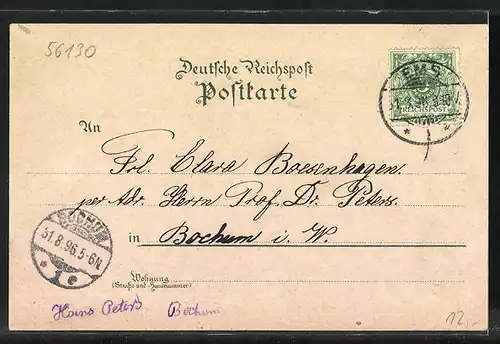 56130
Deutsche Reichspost
Postkarte
EMS
REICHSPOST
An
Frl. Clara Boesenhagen.
per Adr. Herrn Prof. Dr. Peters.
in Bochum i. W.
BOCHUM
31.8.96.5-6N
Wohnung
(Straße und Hausnummer)
Hans Peters Bochum
12,-